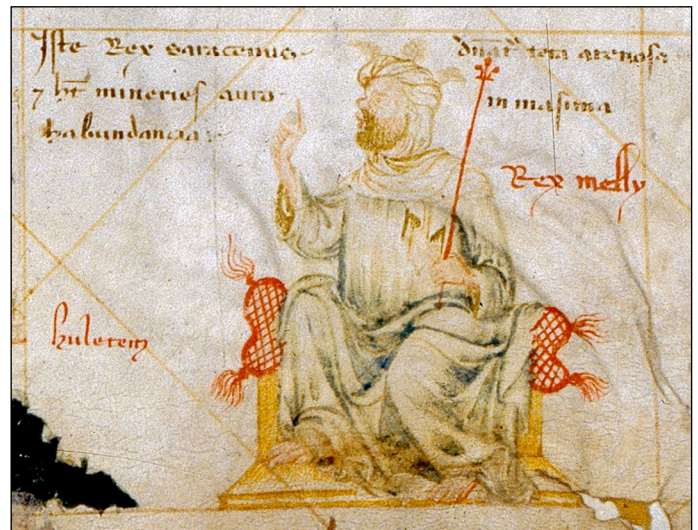 Iste Rex saracenus
dn̄at' tera arenosa
⁊ ht̄ mineries auro
in maxima
habundancia
Rex melly